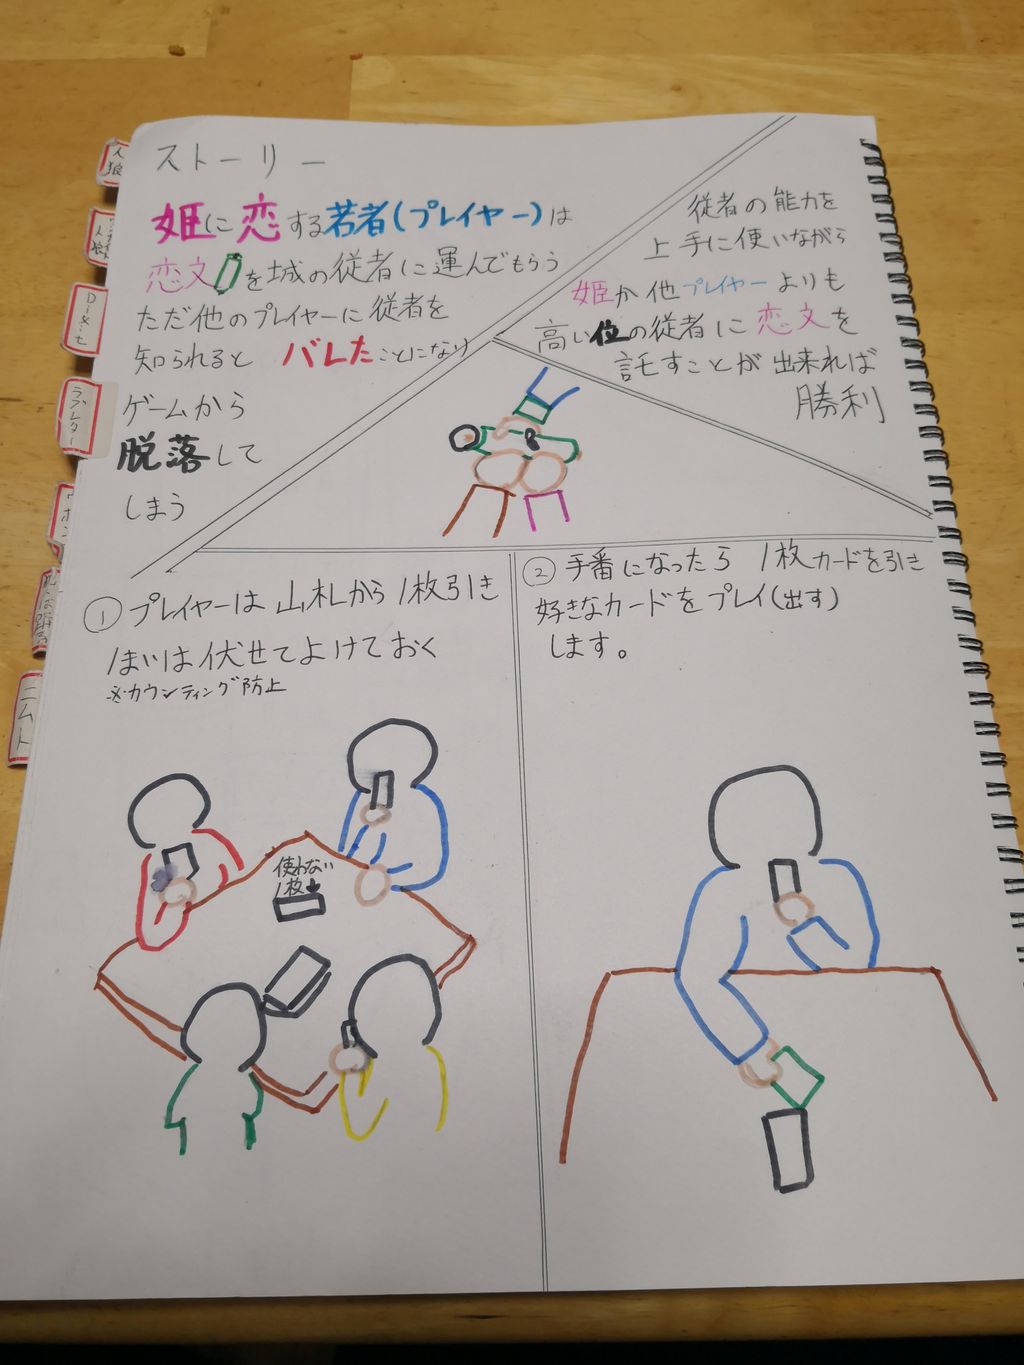 ストーリー
姫に恋する若者(プレイヤー)は
恋文を城の従者に運んでもらう
ただ他のプレイヤーに従者を
知られると バレたことになり
ゲームから
脱落して
しまう
従者の能力を
上手に使いながら
姫か他プレイヤーよりも
高い位の従者に恋文を
託すことが出来れば
勝利
① プレイヤーは山札から1枚引き
1まいは伏せてよけておく
※カウンティング防止
使わない
1枚
② 手番になったら 1枚カードを引き
好きなカードをプレイ(出す)
します。
人狼
人狼
ラブレター
ニムト